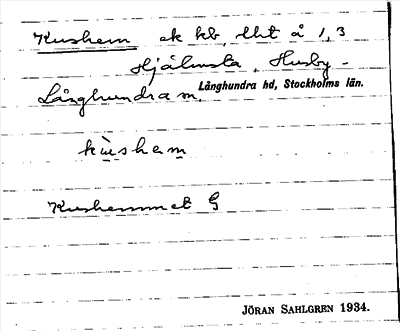 Kushem ek kb, lht å 1,3
Hjälmsta, Husby-
Långhundra sn.
Långhundra hd, Stockholms län.
kùshem
Kushemmet G
JÖRAN SAHLGREN 1934.